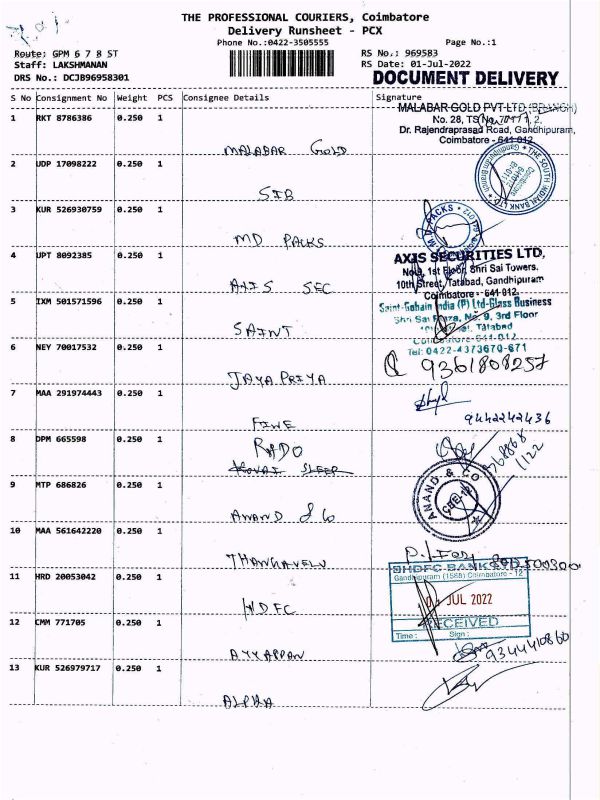 THE PROFESSIONAL COURIERS, Coimbatore
Delivery Runsheet - PCX
Phone No.:0422-3505555
Page No.:1
Route: GPM 6 7 8 ST
RS No.: 969583
Staff: LAKSHMANAN
RS Date: 01-Jul-2022
DRS No.: DCJB96958301
DOCUMENT DELIVERY
S No Consignment No Weight PCS Consignee Details Signature
1 RKT 8786386 0.250 1
MALABAR GOLD
MALABAR GOLD PVT LTD (BRANCH)
No. 28, TS
Dr. Rajendraprasad Road, Gandhipuram,
Coimbatore - 641 012
2 UDP 17098222 0.250 1
SIB
THE SOUTH INDIAN BANK LTD
Gandhipuram Branch
3 KUR 526930759 0.250 1
MD PACKS
M.D. PACKS
4 UPT 8092385 0.250 1
AXIS SEC
AXIS SECURITIES LTD,
No.9, 1st Floor, Shri Sai Towers,
10th Street, Tatabad, Gandhipuram
Coimbatore - 641 012.
5 IXM 501571596 0.250 1
SAINT
Saint-Gobain India (P) Ltd-Glass Business
Shri Sai Plaza, No. 9, 3rd Floor
Tatabad
Coimbatore-641-012
Tel: 0422-4373670-671
6 NEY 70017532 0.250 1
JAYA PRIYA
9361808257
7 MAA 291974443 0.250 1
FIVE
9442242436
8 DPM 665598 0.250 1
RADO
KOVAI SLEEP
9 MTP 686826 0.250 1
ANAND & Co
ANAND & CO
10 MAA 561642220 0.250 1
THANGAVELU
11 HRD 20053042 0.250 1
HDFC
HDFC BANK
Gandhipuram (1588) Coimbatore - 12
JUL 2022
RECEIVED
Time: Sign:
12 CMM 771705 0.250 1
AYYAPPAN
9344410860
13 KUR 526979717 0.250 1
ALPHA